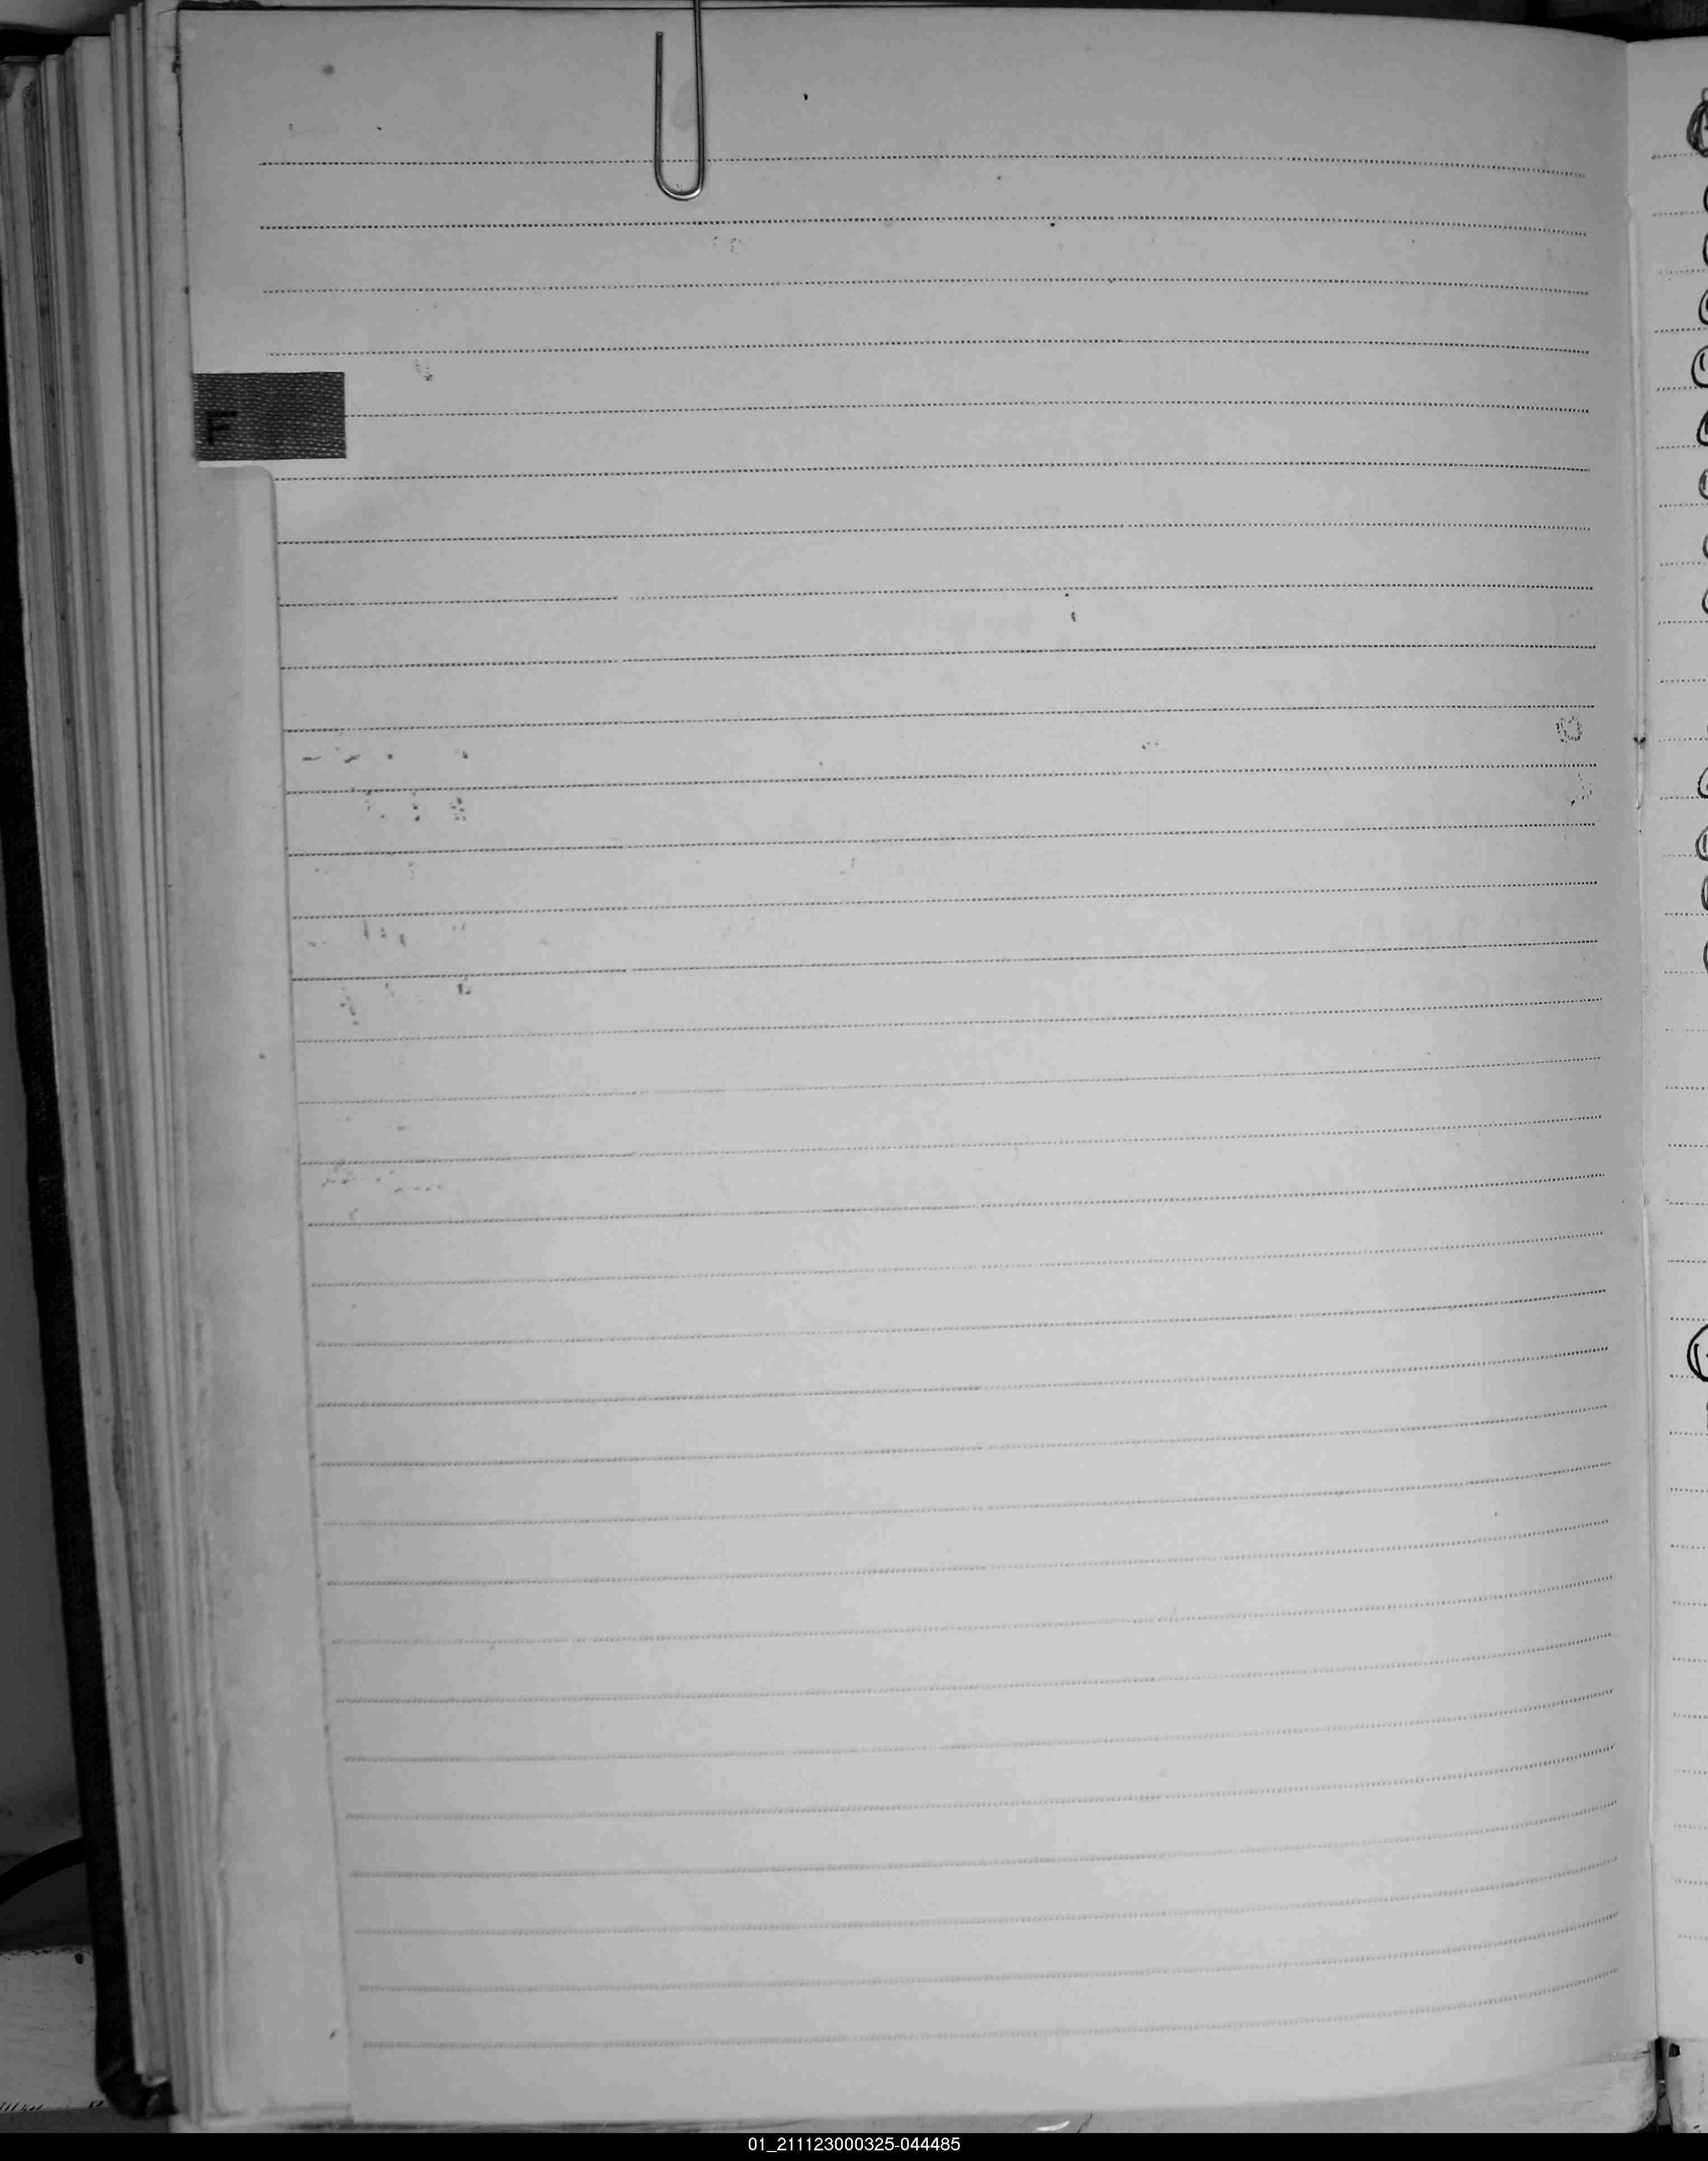 F
01_211123000325-044485